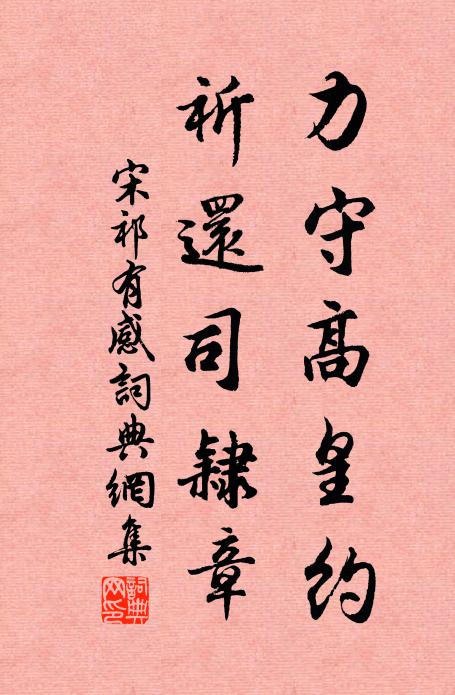 力守高皇約
祈還司隸章
宋祁有感詞典網集
詞典网印